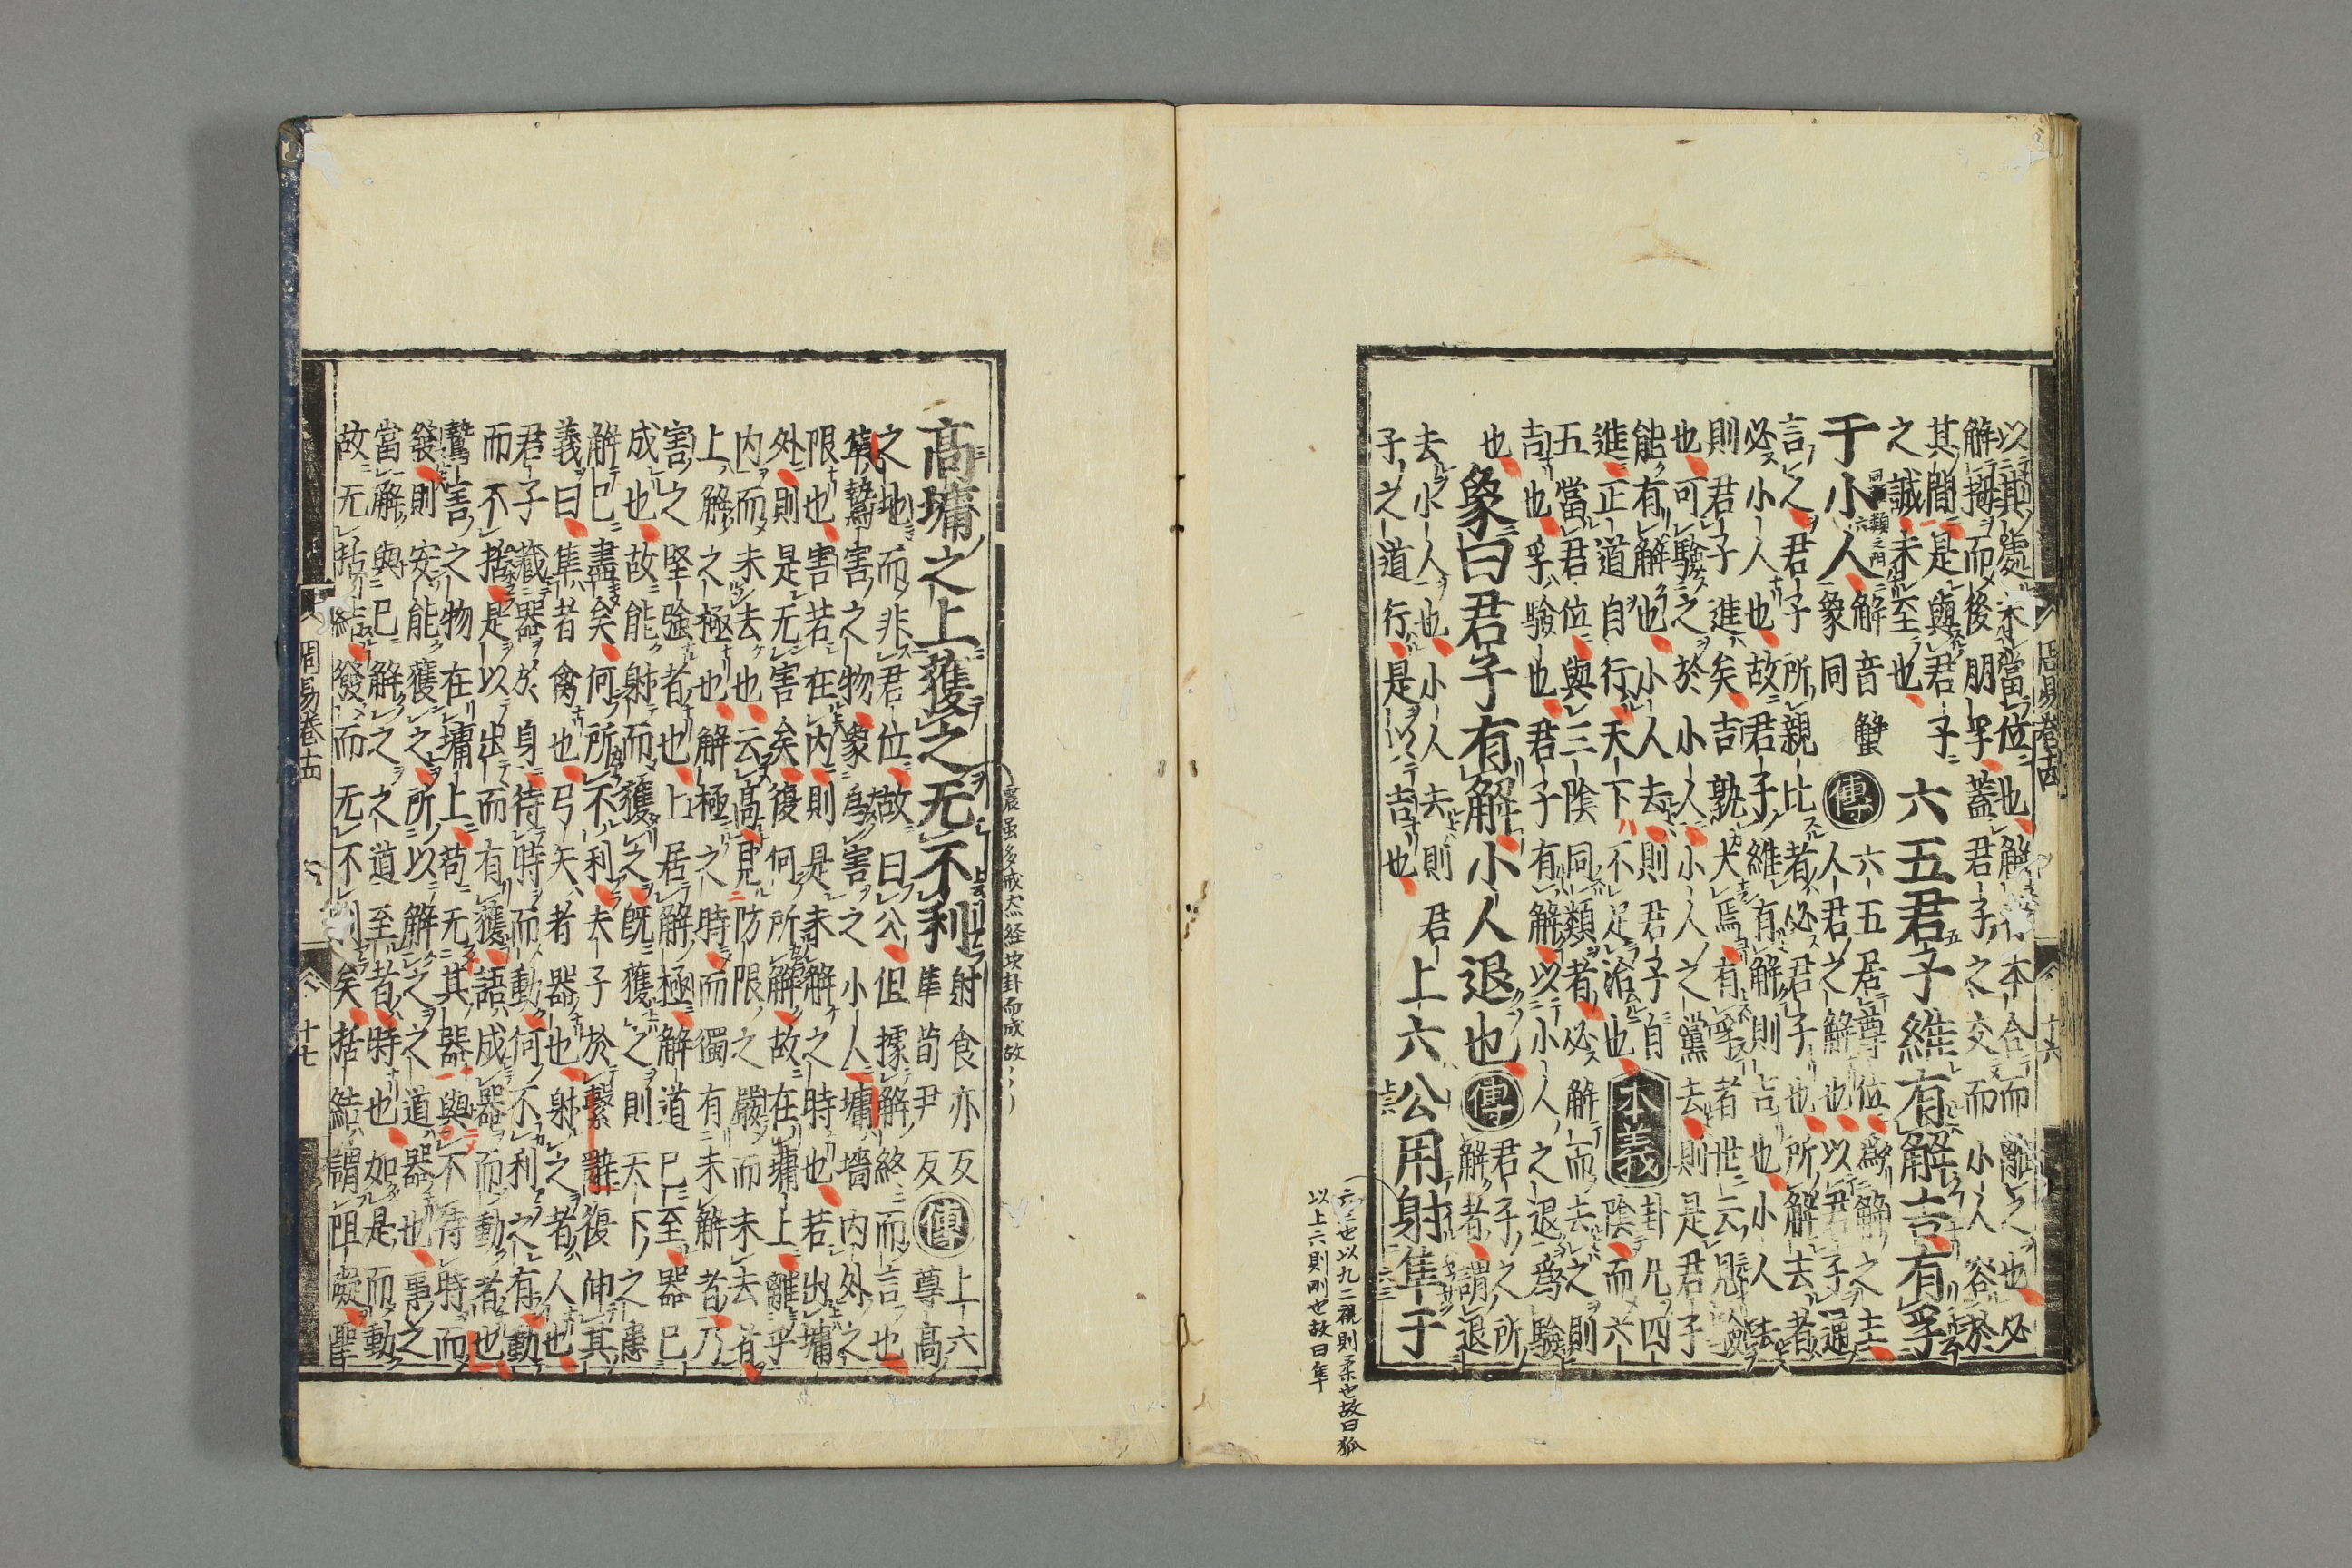 以其處未當位也解者本合而離之也必
解拇而後朋孚蓋君子之交而小人容於
其間是與君子
之誠未至也
六五君子維有解吉有孚
于小人
象同
解音蟹
傳
六五居尊位爲解之主
人君之解也以君子通
言之君子所親比者必君子也所解去者
必小人也故君子維有解則吉也小人去
則君子進矣吉孰大焉有孚者世云見驗
也可驗之於小人小人之黨去則是君子
能有解也小人去則君子自
進正道自行天下不足治也
本義
卦凡四
陰而六
五當君位與三陰同類者必解而去之則
吉也孚驗也君子有解以小人之退爲驗
也
象曰君子有解小人退也
傳
君子之所
解者謂退
去小人也小人去則君
子之道行是以吉也
上六公用射隼于
周易卷十四
十六
六三也以九二視則柔也故曰狐
以上六則剛也故曰隼
高墉之上獲之无不利
射食亦反
隼荀尹反
傳
上六
尊高
之地而非君位故曰公但據解終而言也
隼鷙害之物象爲害之小人墉墻内外之
限也害若在内則是未解之時也若出墉
外則是无害矣復何所解故在墉上離乎
内而未去也云高見防限之嚴而未去者
上解之極也解極之時而獨有未解者乃
害之堅強者也上居解極解道已至器已
成也故能射而獲之旣獲之則天下之患
解已盡矣何所不利夫子於繫辭復伸其
義曰隼者禽也弓矢者器也射之者人也
君子藏器於身待時而動何不利之有動
而不括是以出而有獲語成器而動者也
鷙害之物在墉上苟无其器與不待時而
發則安能獲之所以解之之道器也事之
當解與已解之之道至者時也如是而動
故无括結發而无不利矣括結謂阻礙聖
周易卷十四
十七